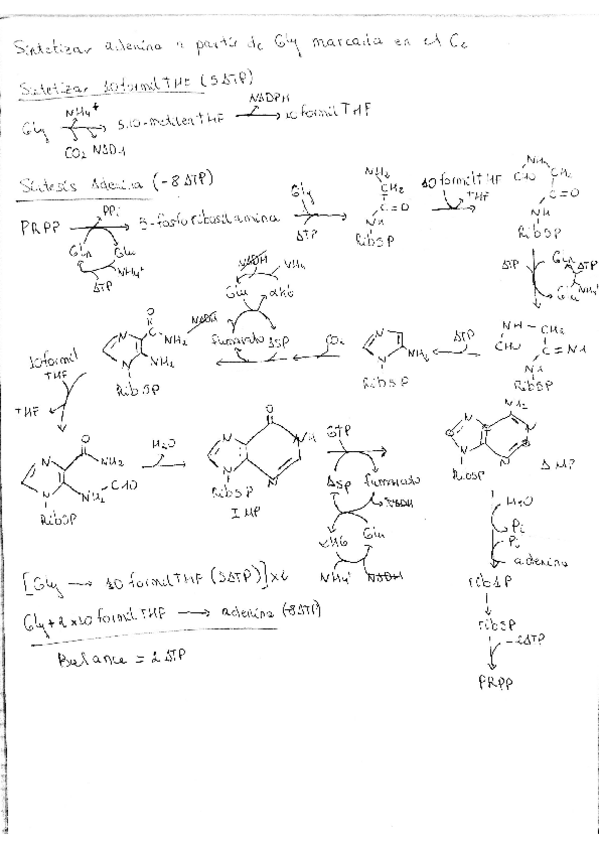 Sintetizar adenina a partir de Gly marcada en el C2
Sintetizar 10 formil THF (5ATP)
NH4+
NADPH
Gly
5,10-metilen THF
10 formil THF
CO2 NADH
Síntesis Adenina (-8 ATP)
PRPP
PPi
5-fosforibosilamina
Gln
Glu
NH4+
ATP
Gly
ATP
NH2
CH2
C=O
NH
Rib5P
10 formil THF
THF
NH
CHO
CH2
C=O
NH
Rib5P
ATP
Gln
ATP
Glu
NH4+
NH
CH2
CHO
C=NH
NH
Rib5P
ATP
N
N
NH2
Rib5P
CO2
Asp
fumarato
NADH
NH4
Glu
αKG
NADH
N
N
O
C
NH2
NH2
Rib5P
10 formil
THF
THF
N
N
O
NH2
NH
CHO
Rib5P
H2O
O
N
NH
N
N
Rib5P
IMP
GTP
Asp
fumarato
NADH
αKG
Glu
NH4+
NADH
NH2
N
N
N
N
Rib5P
AMP
H2O
Pi
Pi
adenina
rib1P
rib5P
-2ATP
PRPP
[Gly → 10 formil THF (5ATP)]x2
Gly + 2 x 10 formil THF → adenina (-8ATP)
Balance = 2 ATP